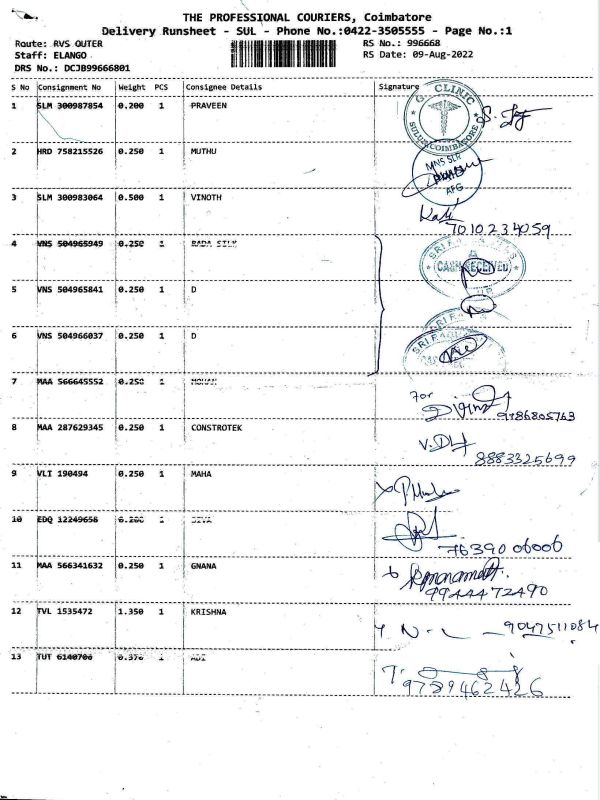 THE PROFESSIONAL COURIERS, Coimbatore
Delivery Runsheet - SUL - Phone No.:0422-3505555 - Page No.:1
Route: RVS OUTER
RS No.: 996668
Staff: ELANGO
RS Date: 09-Aug-2022
DRS No.: DCJB99666801
S No Consignment No Weight PCS Consignee Details Signature
1 SLM 300987854 0.200 1 PRAVEEN
CLINIC
2 HRD 758215526 0.250 1 MUTHU
MNS SLR
AFG
3 SLM 300983064 0.500 1 VINOTH
7010234059
4 VNS 504965949 0.250 1 RADA SILK
CASH RECEIVED
5 VNS 504965841 0.250 1 D
6 VNS 504966037 0.250 1 D
7 MAA 566645552 0.250 1 MOHAN
For
9786805763
8 MAA 287629345 0.250 1 CONSTROTEK
8883325699
9 VLI 190494 0.250 1 MAHA
10 EDQ 12249658 0.200 1 SIVA
7639006006
11 MAA 566341632 0.250 1 GNANA
9944472490
12 TVL 1535472 1.350 1 KRISHNA
9047511084
13 TUT 6140706 0.370 1 ADI
9789462426